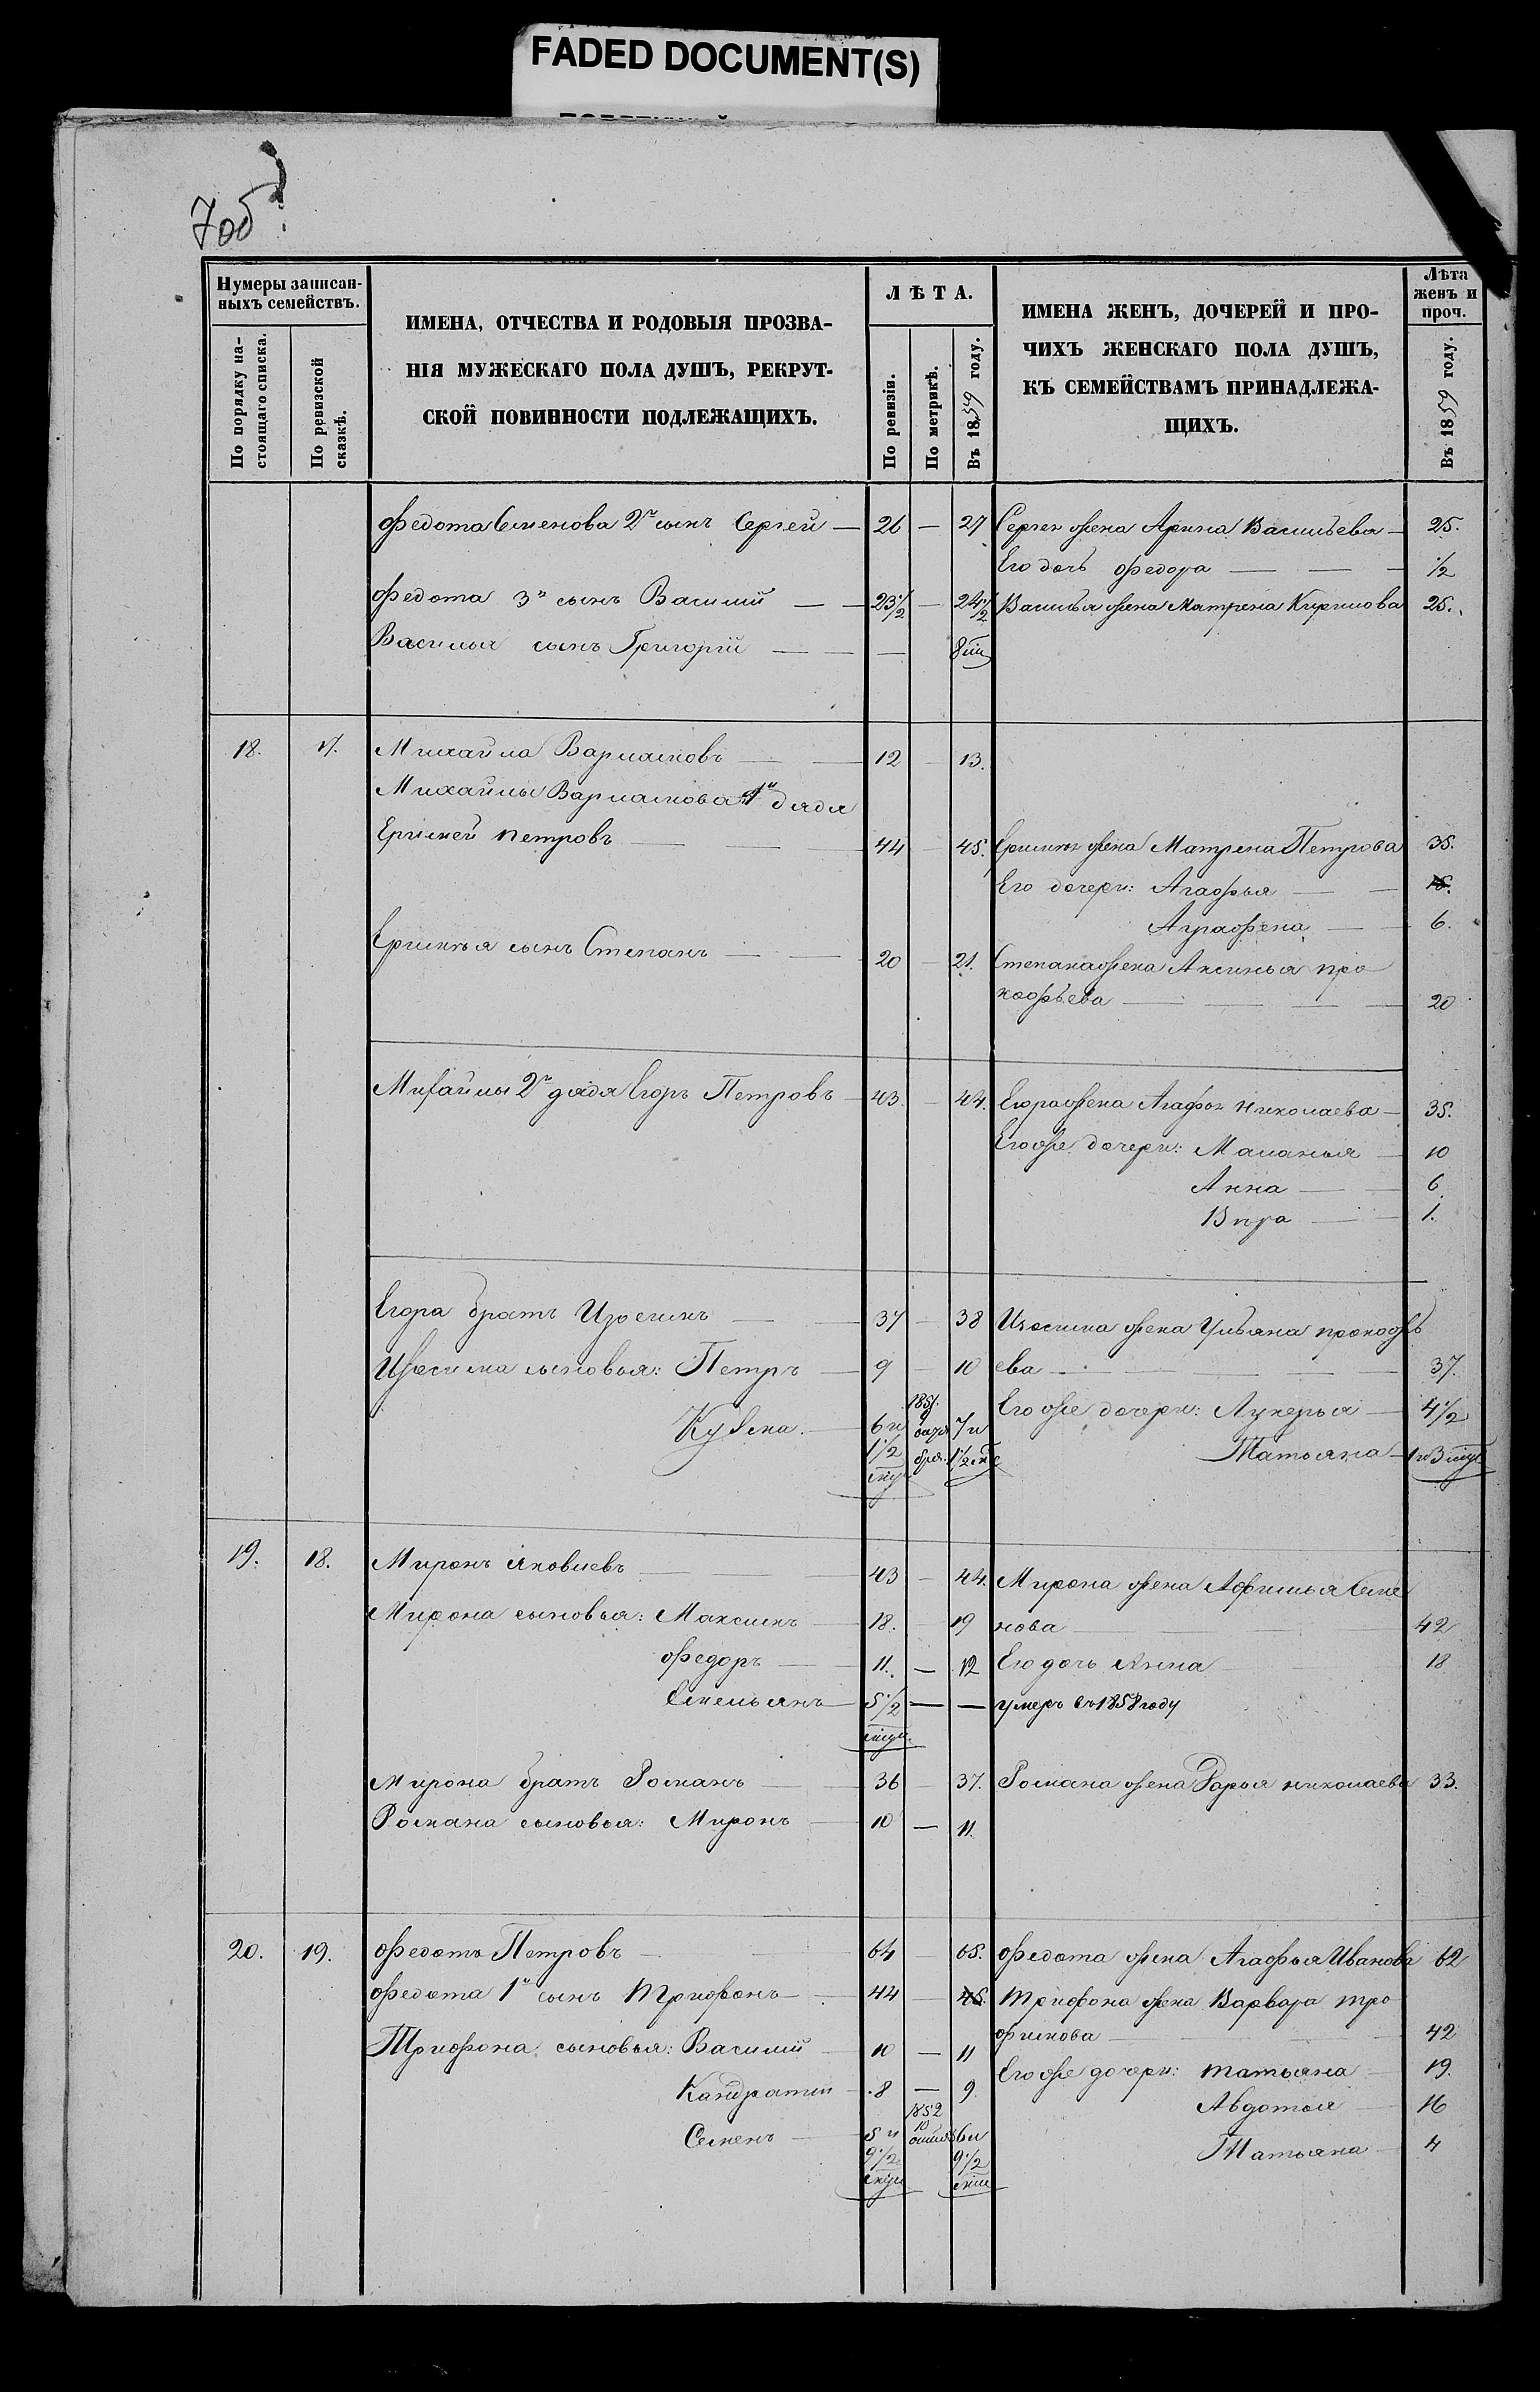 FADED DOCUMENT(S)
7об
Нумеры записан-
ныхъ семействъ.
По порядку на-
стоящаго списка.
По ревизской
сказкѣ.
ИМЕНА, ОТЧЕСТВА И РОДОВЫЯ ПРОЗВА-
НІЯ МУЖЕСКАГО ПОЛА ДУШЪ, РЕКРУТ-
СКОЙ ПОВИННОСТИ ПОДЛЕЖАЩИХЪ.
ЛѢТА.
По ревизіи.
По метрикѣ.
Въ 1859 году.
ИМЕНА ЖЕНЪ, ДОЧЕРЕЙ И ПРО-
ЧИХЪ ЖЕНСКАГО ПОЛА ДУШЪ,
КЪ СЕМЕЙСТВАМЪ ПРИНАДЛЕЖА-
ЩИХЪ.
Лѣта
женъ и
проч.
Въ 1859 году.
Федота Семенова 2й сынъ Сергей — 26 — 27 Сергея жена Арина Васильева — 25.
Его дочь Федора — — — 1/2
Федота 3й сынъ Василий — — 23 1/2 — 24 1/2 Василья жена Матрена Кирилова 25.
Василья сынъ Григорій — — — 8
18. 17. Михайла Варламовъ — — 12 — 13.
Михайлы Варламова 1й дядя
Ермолей Петровъ — — — 44 — 45. жена Матрена Петрова 35.
Его дочери: Агафья — — 15.
Аграфена — — 6.
сынъ Степанъ — — 20 — 21. Степана жена Аксинья про
кофьева — — — — 20
Михайлы 2й дядя Егоръ Петровъ — 43. — 44. Егора жена Агафья Николаева — 35.
Его же дочери: Маланья — 10
Анна — — 6
Вѣра — — 1.
Егора братъ Изосимъ — — 37 — 38 Изосима жена Ульяна прокофь
Изосима сыновья: Петръ — 9 — 10 ева — — — — — 37.
Его же дочери: Лукерья — 4 1/2
Кузьма. — 6 и 1851. 9 7 и
1 1/2 1 1/2
Татьяна — 1 и 3
19. 18. Миронъ Яковлевъ — — 43 — 44. Мирона жена Афимья Семе
Мирона сыновья: Максимъ — 18. — 19 нова — — — 42
Федоръ — — 11. — 12 Его дочь Анна — 18
Емельянъ — 5 1/2 — — умеръ въ 1858 году
Мирона братъ Романъ — — 36 — 37. Романа жена Дарья Николаева 33.
Романа сыновья: Миронъ — 10 — 11.
20. 19. Федотъ Петровъ — — 64 — 65. Федота жена Агафья Иванова 62
Федота 1й сынъ Трифонъ — — 44 — 45. Трифона жена Варвара тро
фимова — — — 42
Трифона сыновья: Василий — 10 — 11
Его же дочери: Татьяна — 19.
Кандратий — 8 — 9.
Авдотья — 16
Семенъ — 5 и 1852 10 6 и
9 1/2 9 1/2
Татьяна — 4